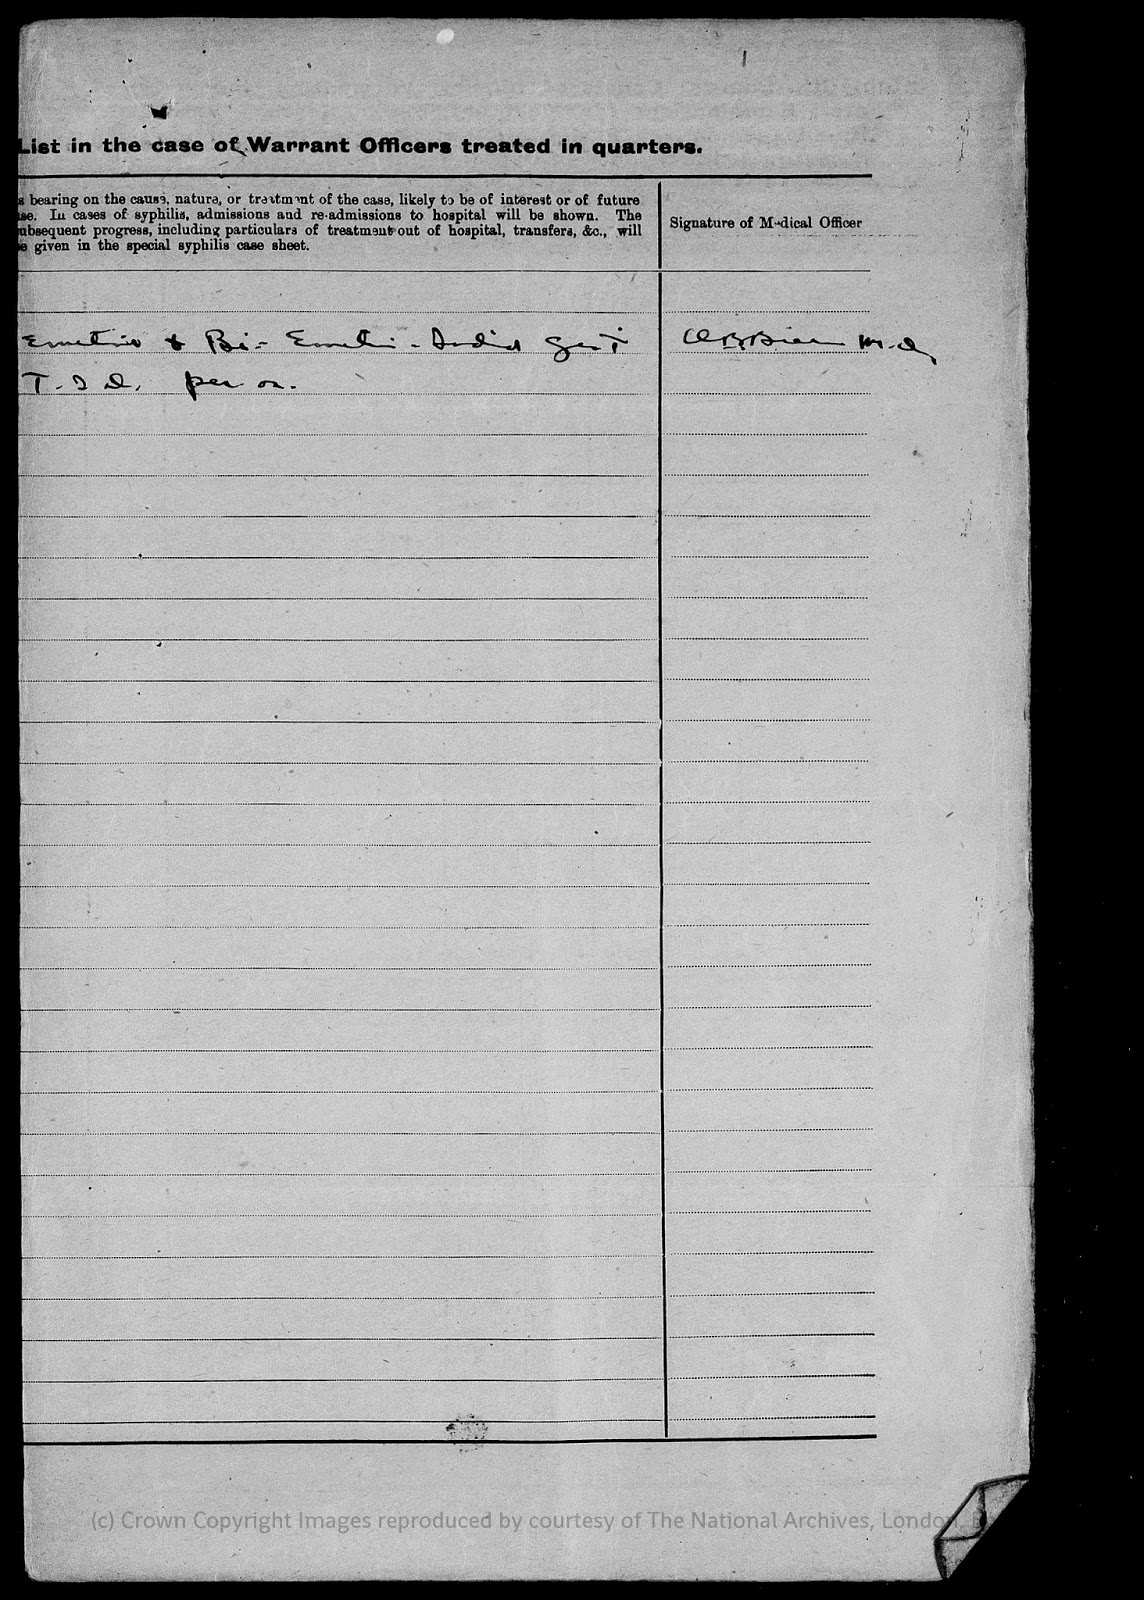 List in the case of Warrant Officers treated in quarters.
s bearing on the cause, nature, or treatment of the case, likely to be of interest or of future
se. In cases of syphilis, admissions and re-admissions to hospital will be shown. The
ubsequent progress, including particulars of treatment out of hospital, transfers, &c., will
e given in the special syphilis case sheet.
Signature of Medical Officer
Emetine & Bi- Emetin - Iodid
T. I D. per
(c) Crown Copyright Images reproduced by courtesy of The National Archives, London, E